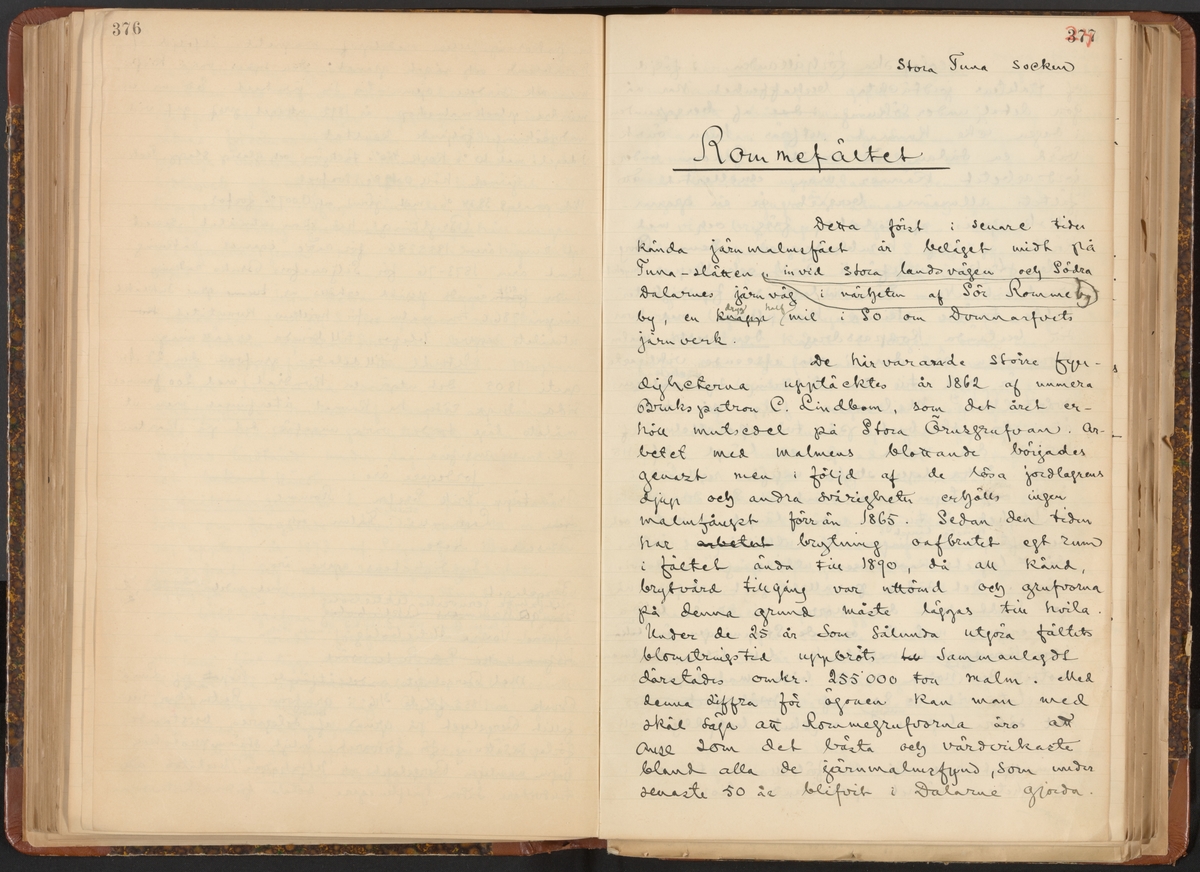 376
377
Stora Tuna socken
Rommefältet
Detta först i senare tider
kända järnmalmsfält är beläget midt på
Tuna-slätten, invid stora landsvägen och Södra
Dalarnes järnväg i närheten af Sör Romme by
by, en knapp mil i SO om Domnarfvets
järnverk.
De härvarande större fyn-
digheterna upptäcktes år 1862 af numera
Brukspatron C. Lindbom, som det året er-
höll mutsedel på Stora Örnsgrufvan. Ar-
betet med malmens blottande börjades
genast men i följd af de lösa jordlagrens
djup och andra svårigheter erhölls ingen
malmfångst förr än 1865. Sedan den tiden
har arbetet brytning oafbrutet egt rum
i fältet ända till 1890 då all känd,
brytvärd tillgång var uttömd och grufvorna
på denna grund måste läggas till hvila.
Under de 25 år som sålunda utgöra fältets
blomstringstid uppbröts sammanlagdt
därstädes omkr. 255'000 ton malm. Med
denna siffra för ögonen kan man med
skäl säga att Rommegrufvorna äro att
anse som det bästa och värdrikaste
bland alla de järnmalmsfynd, som under
senaste 50 år blifvit i Dalarne gjorda.